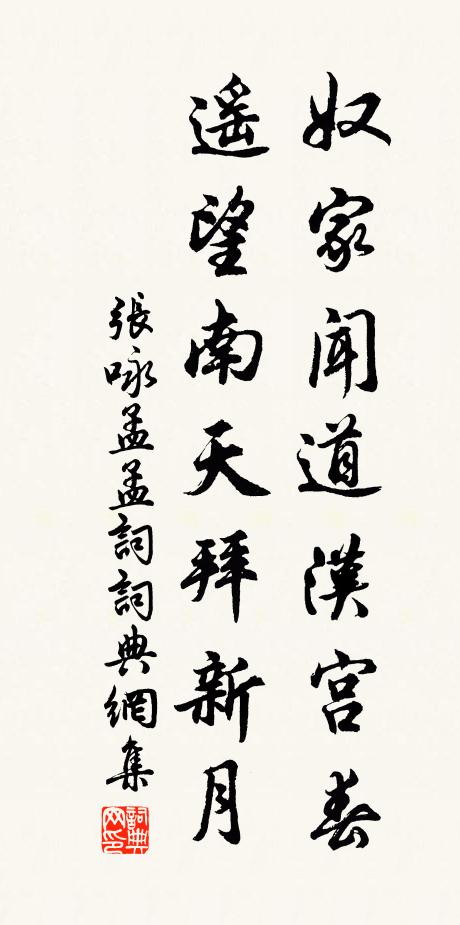 奴家聞道漢宮春
遙望南天拜新月
張咏孟孟詞詞典網集
詞典网印